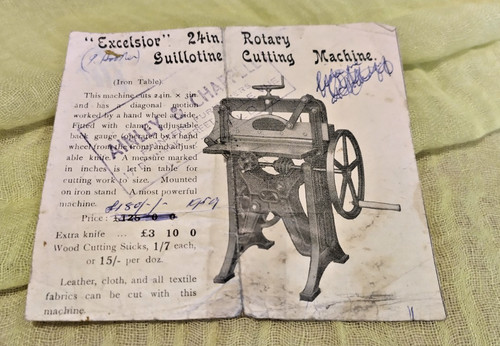 "Excelsior" 24in. Rotary
Guillotine Cutting Machine.
(Iron Table)
This machine cuts 24in. × 3in
and has a diagonal motion
worked by a hand wheel at side.
Fitted with clamp, adjustable
back gauge (operated by a hand
wheel from the front) and adjust-
able knife. A measure marked
in inches is let in table for
cutting work to size. Mounted
on iron stand. A most powerful
machine. £180/-/-
Price: £125 0 0
Extra knife ... £3 10 0
Wood Cutting Sticks, 1/7 each,
or 15/- per doz.
Leather, cloth, and all textile
fabrics can be cut with this
machine.